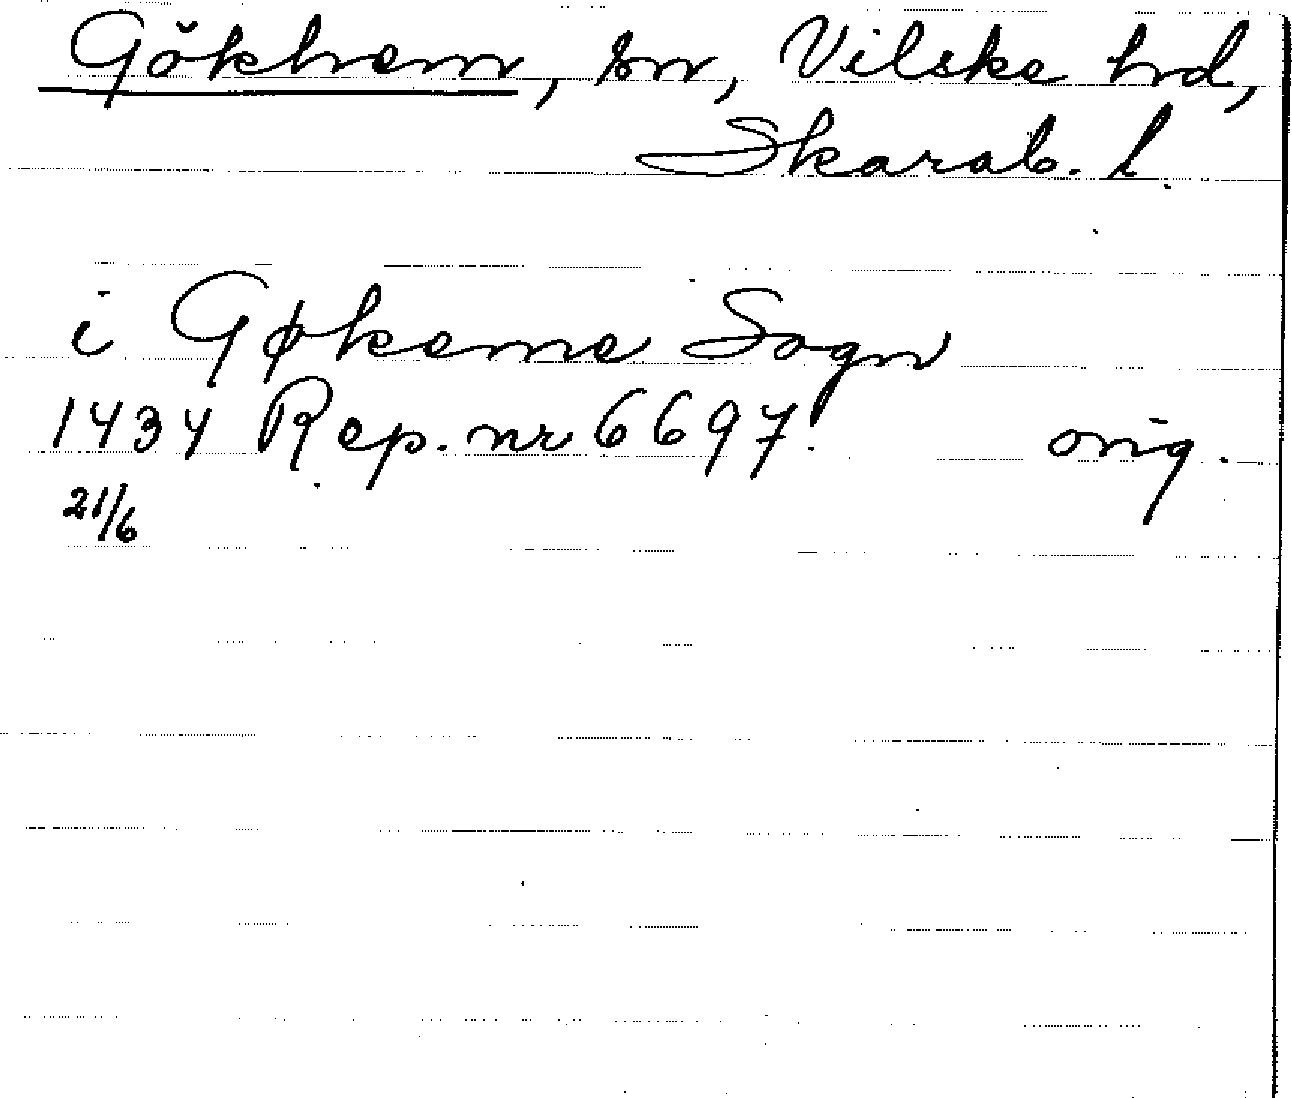 Gökhem, sn, Vilske hd,
Skarab. l.
i Gøkeme Sogn
1434 Rep. nr 6697. orig.
21/6